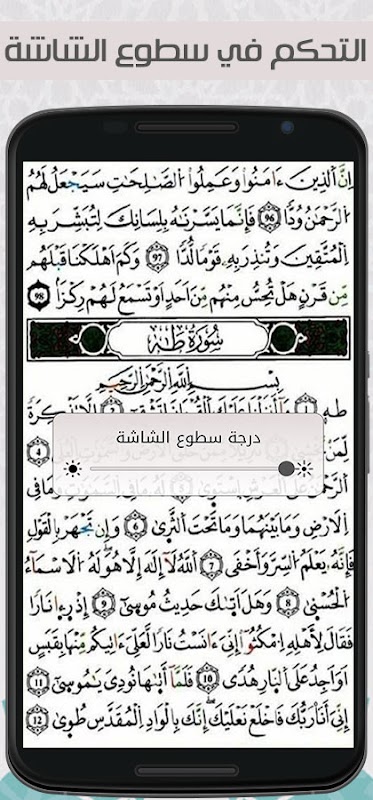 التحكم في سطوع الشاشة
اِنَّ الَّذِينَ ءَامَنُوا وَعَمِلُوا الصَّـٰلِحَـٰتِ سَيَجْعَلُ لَهُمُ
الرَّحْمَـٰنُ وُدًّا 96 فَاِنَّمَا يَسَّرْنَـٰهُ بِلِسَانِكَ لِتُبَشِّرَ بِهِ
الْمُتَّقِينَ وَتُنْذِرَ بِهِ قَوْمًا لُدًّا 97 وَكَمْ اَهْلَكْنَا قَبْلَهُمْ
مِنْ قَرْنٍ هَلْ تُحِسُّ مِنْهُمْ مِنْ اَحَدٍ اَوْ تَسْمَعُ لَهُمْ رِكْزًا 98
سُورَةُ طٰهٰ
بِسْمِ اللَّهِ الرَّحْمَـٰنِ الرَّحِيمِ
طه 1
درجة سطوع الشاشة
لِمَنْ 4
الرَّحْمَـٰنُ وَمَا فِى
الْاَرْضِ وَمَا بَيْنَهُمَا وَمَا تَحْتَ الثَّرَىٰ 6 وَاِنْ تَجْهَرْ بِالْقَوْلِ
فَاِنَّهُ يَعْلَمُ السِّرَّ وَاَخْفَى 7 اَللَّهُ لَآ اِلَـٰهَ اِلَّا هُوَ لَهُ الْاَسْمَآءُ
الْحُسْنَىٰ 8 وَهَلْ اَتَىٰكَ حَدِيثُ مُوسَىٰ 9 اِذْ رَءَا نَارًا
فَقَالَ لِاَهْلِهِ امْكُثُوٓا اِنِّىٓ ءَانَسْتُ نَارًا لَعَلِّىٓ ءَاتِيكُمْ مِنْهَا بِقَبَسٍ
اَوْ اَجِدُ عَلَى النَّارِ هُدًى 10 فَلَمَّآ اَتَىٰهَا نُودِىَ يَـٰمُوسَىٰٓ 11
اِنِّىٓ اَنَا رَبُّكَ فَاخْلَعْ نَعْلَيْكَ اِنَّكَ بِالْوَادِ الْمُقَدَّسِ طُوًى 12